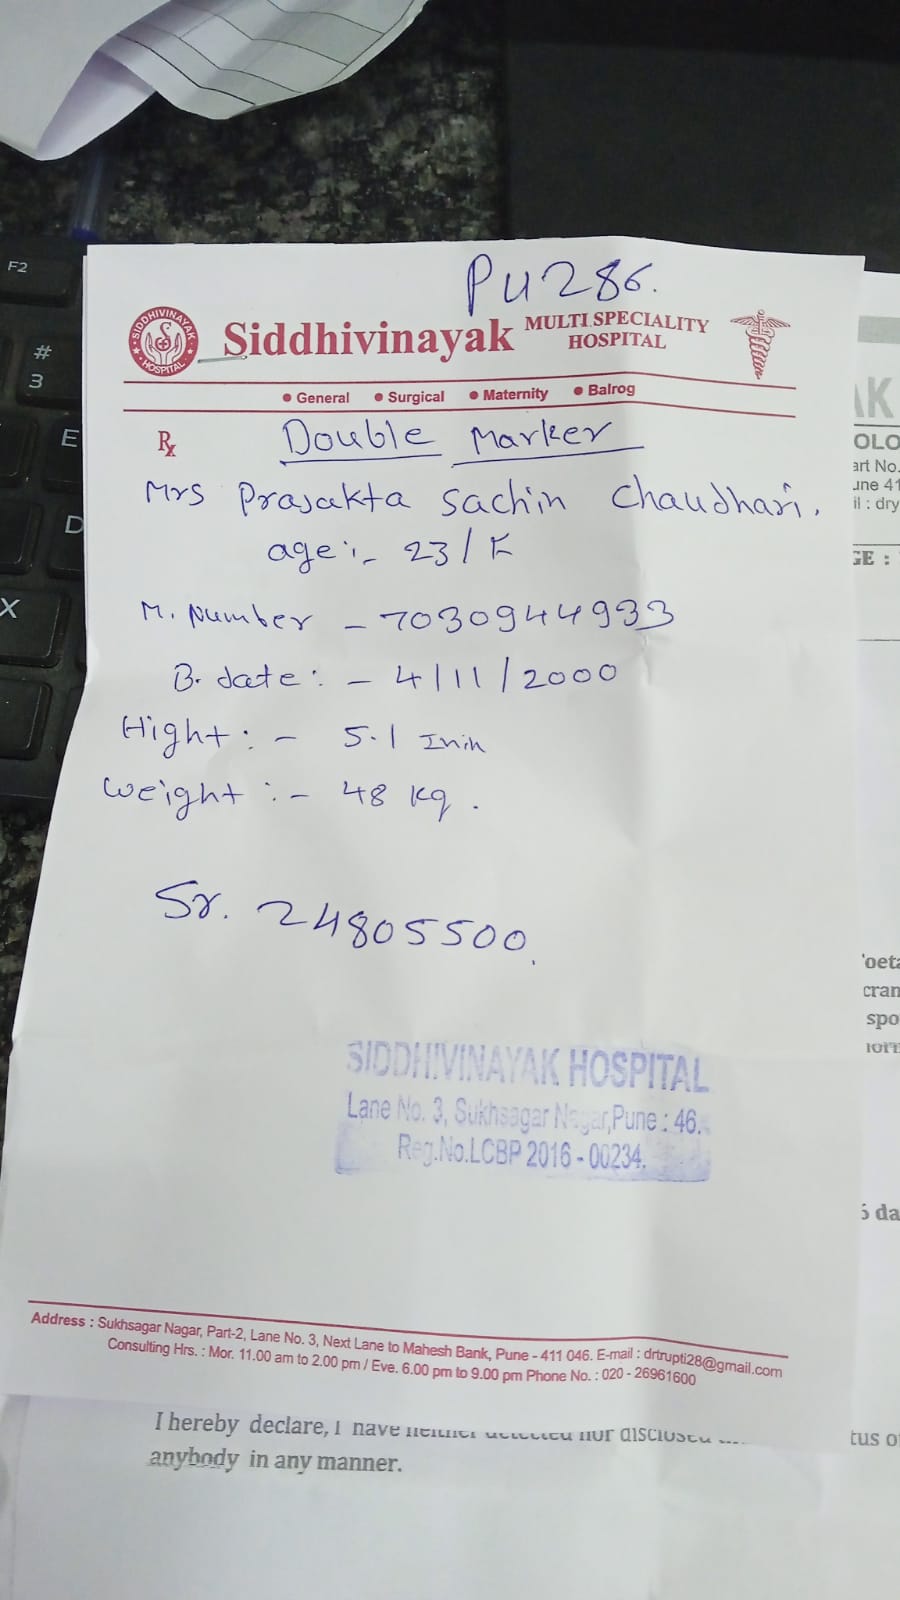 PU286.
SIDDHIVINAYAK HOSPITAL
Siddhivinayak MULTI SPECIALITY HOSPITAL
• General • Surgical • Maternity • Balrog
Rx
Double Marker
Mrs Prajakta Sachin Chaudhari.
age:- 23/F
M. Number - 7030944933
B. date: - 4/11/2000
Hight: - 5.1 Inih
Weight :- 48 kg.
Sr. 24805500.
SIDDHIVINAYAK HOSPITAL
Lane No. 3, Sukhsagar Nagar, Pune : 46.
Reg.No.LCBP 2016 - 00234.
Address : Sukhsagar Nagar, Part-2, Lane No. 3, Next Lane to Mahesh Bank, Pune - 411 046. E-mail : drtrupti28@gmail.com
Consulting Hrs. : Mor. 11.00 am to 2.00 pm / Eve. 6.00 pm to 9.00 pm Phone No. : 020 - 26961600
I hereby declare, I have neither detected nor disclosed
anybody in any manner.
F2
#
3
E
D
X
AK
OLO
art No.
une 41
il : dry
GE :
oeta
cran
spo
6 da
tus o